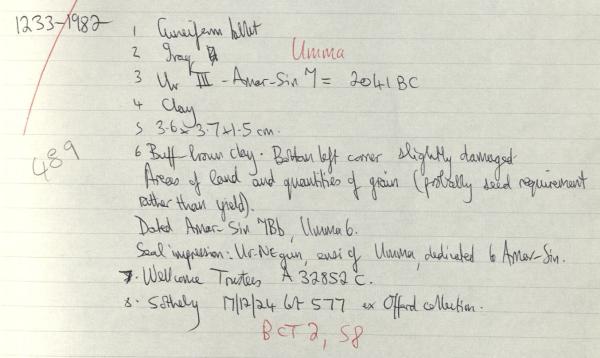 1233-1982
1 Cuneiform tablet
2 Iraq Umma
3 Ur III - Amar-Sin 7 = 2041 BC
4 Clay
5 3.6 x 3.7 x 1.5 cm.
489
6 Buff brown clay. Bottom left corner slightly damaged.
Areas of land and quantities of grain (probably seed requirement
rather than yield).
Dated Amar-Sin 7Bb, Umma 6.
Seal impression: Ur-NEgun, ensi of Umma, dedicated to Amar-Sin.
7. Wellcome Trustees A 32852 C.
8. Sotheby 17/12/24 lot 577 ex Offord collection.
BCT 2, 58